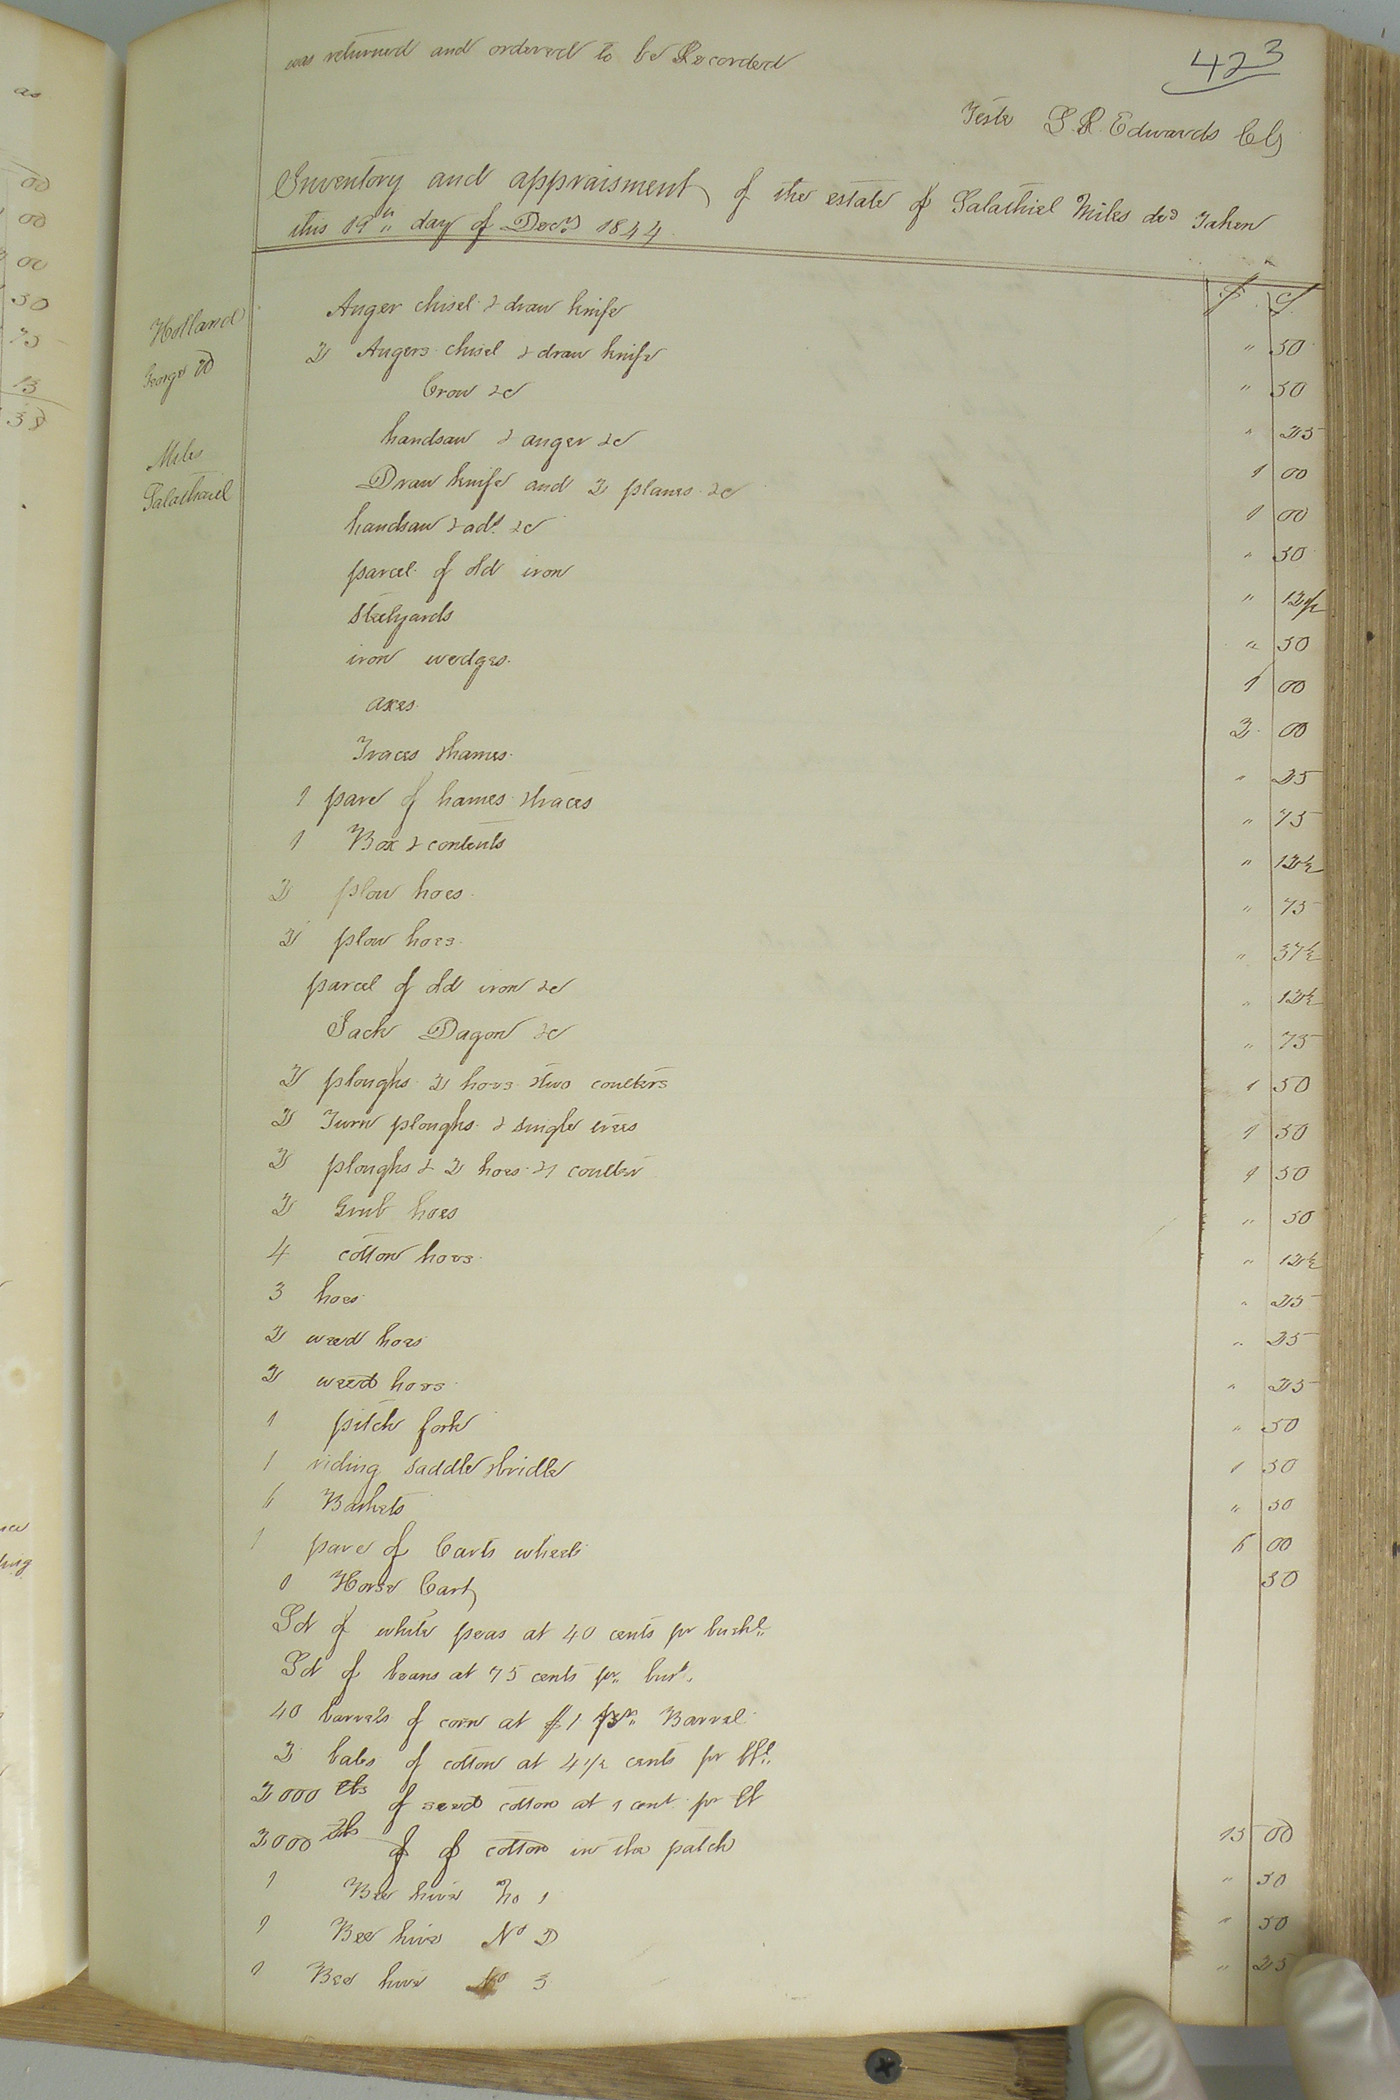 423
was returned and ordered to be Recorded
Teste L. R. Edwards Clk
Inventory and appraisment of the estate of Salathiel Miles decd Taken
this 19th day of Decr 1844
$ c
Holland
George W
Miles
Salathiel
Auger chisel & draw knife " 50
2 Augers chisel & draw knife " 50
Crow &c " 25
handsaw & auger &c 1 00
Draw knife and 2 planes &c 1 00
handsaw & ads &c " 50
parcel of old iron " 12½
Steelyards " 50
iron wedges 1 00
axes 2 00
Traces & hames " 25
1 pare of hames & traces " 75
1 Box & contents " 12½
2 plow hoes " 75
2 plow hoes " 37½
parcel of old iron &c " 12½
Jack Dagon &c " 75
2 ploughs 2 hoes & two coulters 1 50
2 Turn ploughs & single trees 1 50
2 ploughs & 2 hoes & 1 coulter 1 50
2 Grub hoes " 50
4 cotton hoes " 12½
3 hoes " 25
2 weed hoes " 25
2 weed hoes " 25
1 pitch fork " 50
1 riding saddle & bridle 1 50
6 Baskets " 50
1 pare of Carts wheels 6 00
1 Horse Cart 50
Lot of white peas at 40 cents pr bushl
Lot of beans at 75 cents pr bus
40 barrels of corn at $1 pr Barrel
2 bales of cotton at 4½ cents pr lb
2000 lbs of seed cotton at 1 cent pr lb
3000 lbs of of cotton in the patch 15 00
1 Bee hive No 1 " 50
1 Bee hive No 2 " 50
1 Bee hive No 3 " 25